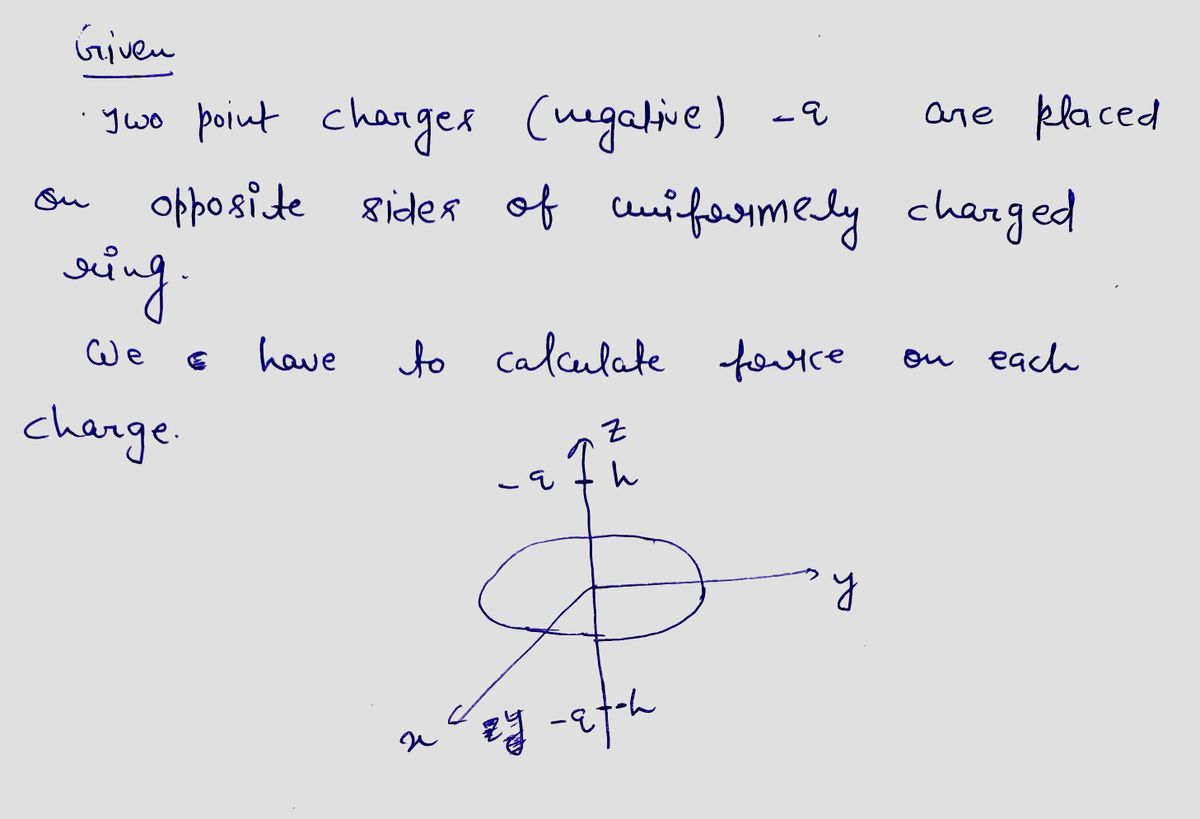 Given
Two point charges (negative) -q are placed
on opposite sides of uniformely charged
ring.
We have to calculate force on each
charge.
z
-q h
y
x -q -h